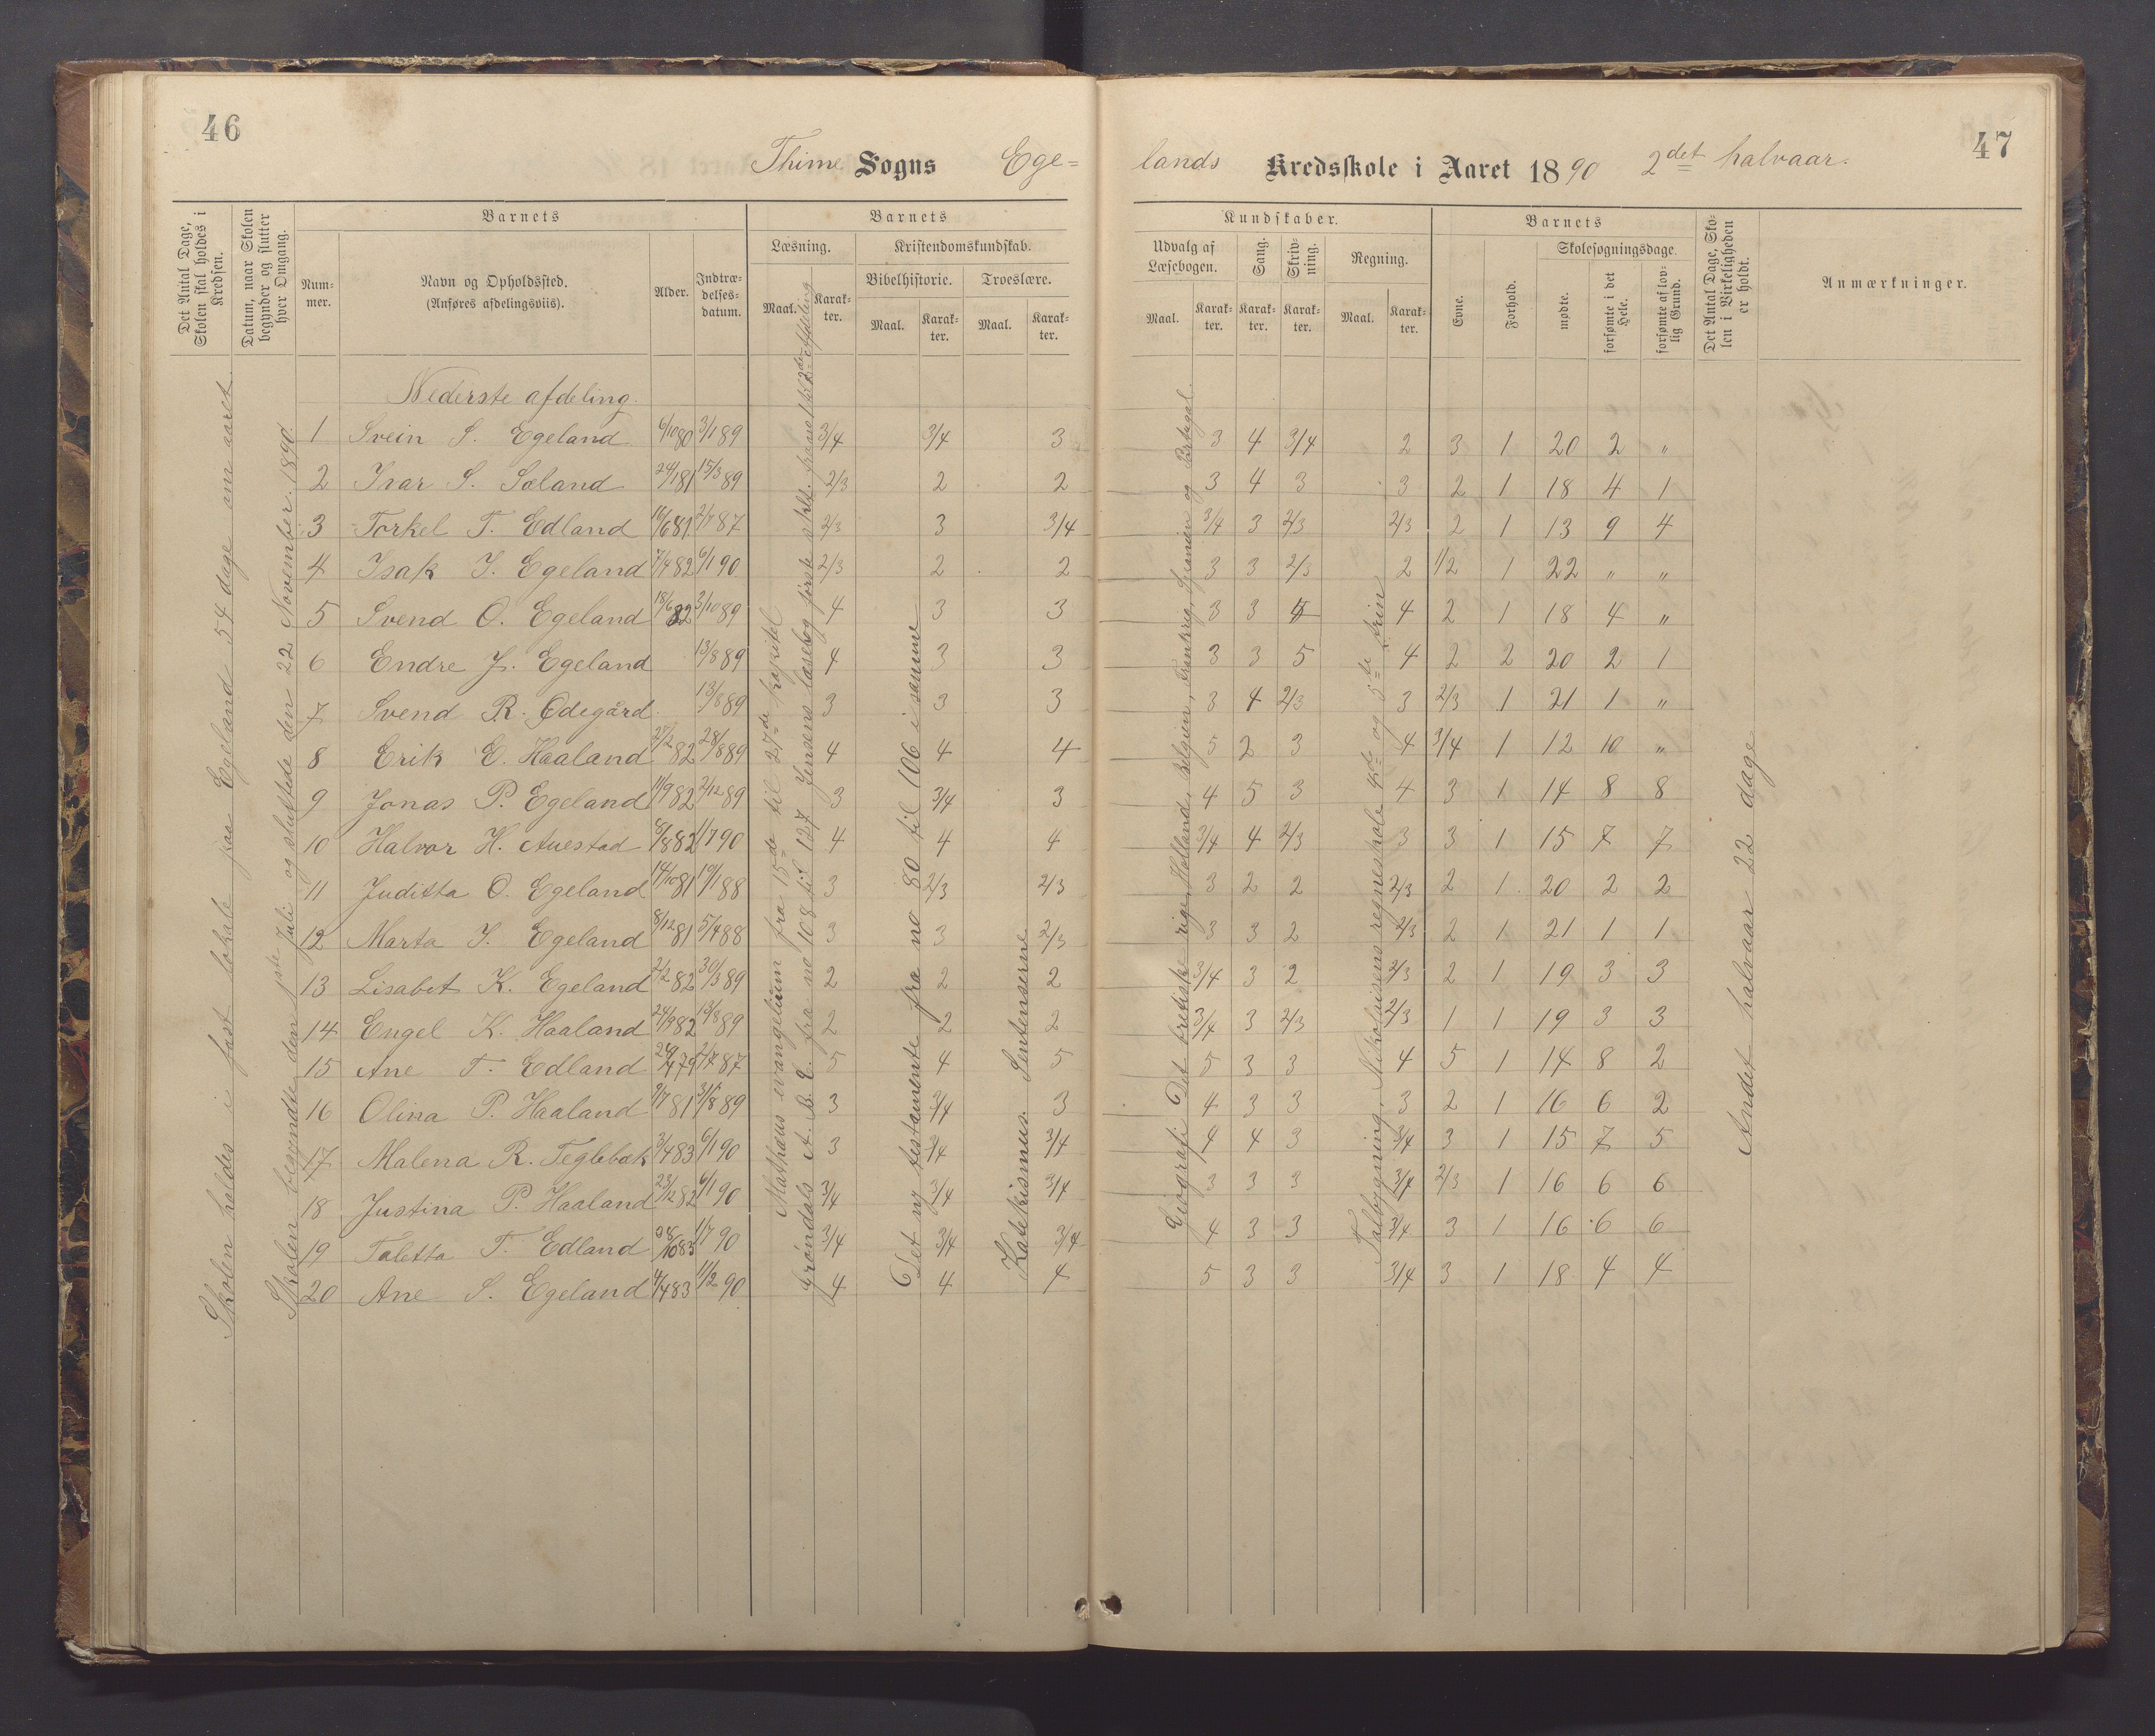 46
Thime Sogns Ege=
lands Kredsskole i Aaret 1890 2det halvaar.
47
Det Antal Dage, Skolen skal holdes i Kredsen.
Datum, naar Skolen begynder og slutter hver Omgang.
Barnets
Nummer.
Navn og Opholdssted.
(Anføres afdelingsviis).
Alder.
Indtrædelsesdatum.
Barnets
Læsning.
Maal.
Karakter.
Kristendomskundskab.
Bibelhistorie.
Maal.
Karakter.
Troeslære.
Maal.
Karakter.
Kundskaber.
Udvalg af Læsebogen.
Maal.
Karakter.
Sang.
Karakter.
Skrivning.
Karakter.
Regning.
Maal.
Karakter.
Barnets
Evne.
Forhold.
Skolesøgningsdage.
mødte.
forsømte i det Hele.
forsømte af lovlig Grund.
Det Antal Dage, Skolen i Virkeligheden er holdt.
Anmærkninger.
Skolen holdes i fast lokale paa Egeland 54 dage om aaret.
Skolen begyndte den 1ste Juli og sluttede den 22 November. 1890.
Mathæus evangelium fra 15de til 27de kapitel
Grøndals A. B. C. fra no 108 til 127 Jensens læsebog første
Det ny testamente fra no 80 til 106 i samme
Katekismus. Sentenserne
Geografi Det britiske rige, Holland, Belgien, Frankrig, Spanien og Portugal.
Talbygning, Nikolaisens regneskole 4de og 5te trin
Andet halvaar 22 dage
Nederste afdeling.
1 Svein S. Egeland 6/10 80 3/1 89 3/4 3/4 3 3 4 3/4 2 3 1 20 2 "
2 Ivar S. Soland 24/1 81 15/3 89 2/3 2 2 3 4 3 3 2 1 18 4 1
3 Torkel T. Edland 16/6 81 2/7 87 2/3 3 3/4 3/4 3 2/3 2/3 2 1 13 9 4
4 Isak I. Egeland 7/4 82 6/1 90 2/3 2 2 3 3 2/3 2 1/2 1 22 " "
5 Svend O. Egeland 18/6 82 3/10 89 4 3 3 3 3 4 4 2 1 18 4 "
6 Endre J. Egeland 13/8 89 4 3 3 3 3 5 4 2 2 20 2 1
7 Svend R. Ødegård. 13/8 89 3 3 3 3 4 2/3 3 2/3 1 21 1 "
8 Erik E. Haaland 27/2 82 28/8 89 4 4 4 5 2 3 4 3/4 1 12 10 "
9 Jonas P. Egeland 11/9 82 2/12 89 3 3/4 3 4 5 3 4 3 1 14 8 8
10 Halvor H. Auestad 6/8 82 1/7 90 4 4 4 3/4 4 2/3 3 3 1 15 7 7
11 Juditta O. Egeland 14/10 81 19/1 88 3 2/3 2/3 3 2 2 2/3 2 1 20 2 2
12 Marta I. Egeland 8/12 81 5/4 88 3 3 2/3 3 3 2 2/3 2 1 21 1 1
13 Lisabet K. Egeland 2/2 82 30/3 89 2 2 2 3/4 3 2 2/3 2 1 19 3 3
14 Engel K. Haaland 24/9 82 13/8 89 2 2 2 3/4 3 2/3 2/3 1 1 19 3 3
15 Ane T. Edland 29/4 79 2/7 87 5 4 5 5 3 3 4 5 1 14 8 2
16 Olina P. Haaland 9/7 81 31/8 89 3 3/4 3 4 3 3 3 2 1 16 6 2
17 Malena R. Teglebæk 3/4 83 6/1 90 3 3/4 3/4 4 4 3 3/4 3 1 15 7 5
18 Justina P. Haaland 23/12 82 6/1 90 3/4 3/4 3/4 3 3 3 3/4 2/3 1 16 6 6
19 Taletta T. Edland 1/7 90 3/4 3/4 3/4 4 3 3 3/4 3 1 16 6 6
20 Ane S. Egeland 4/4 83 11/2 90 4 4 4 5 3 3 3/4 3 1 18 4 4